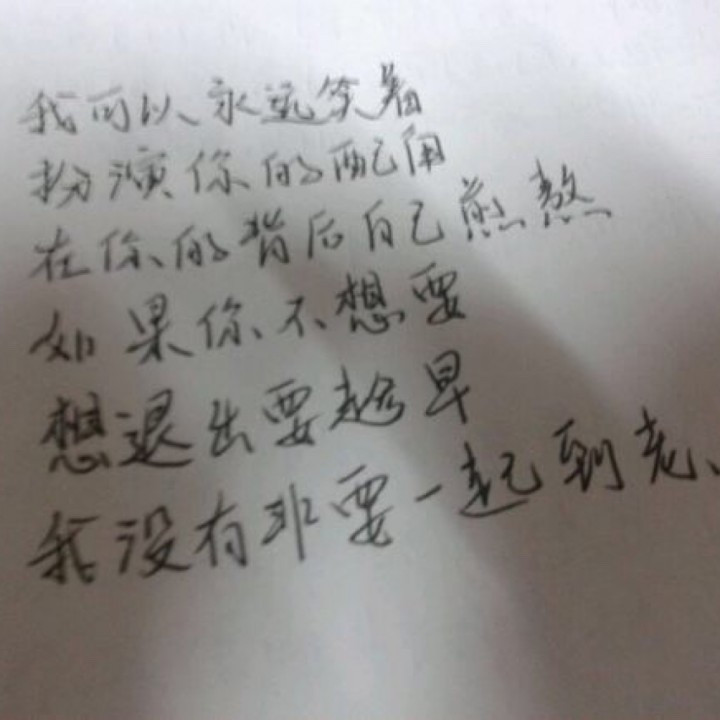 我可以永远笑着
扮演你的配角
在你的背后自己煎熬
如果你不想要
想退出要趁早
我没有非要一起到老、